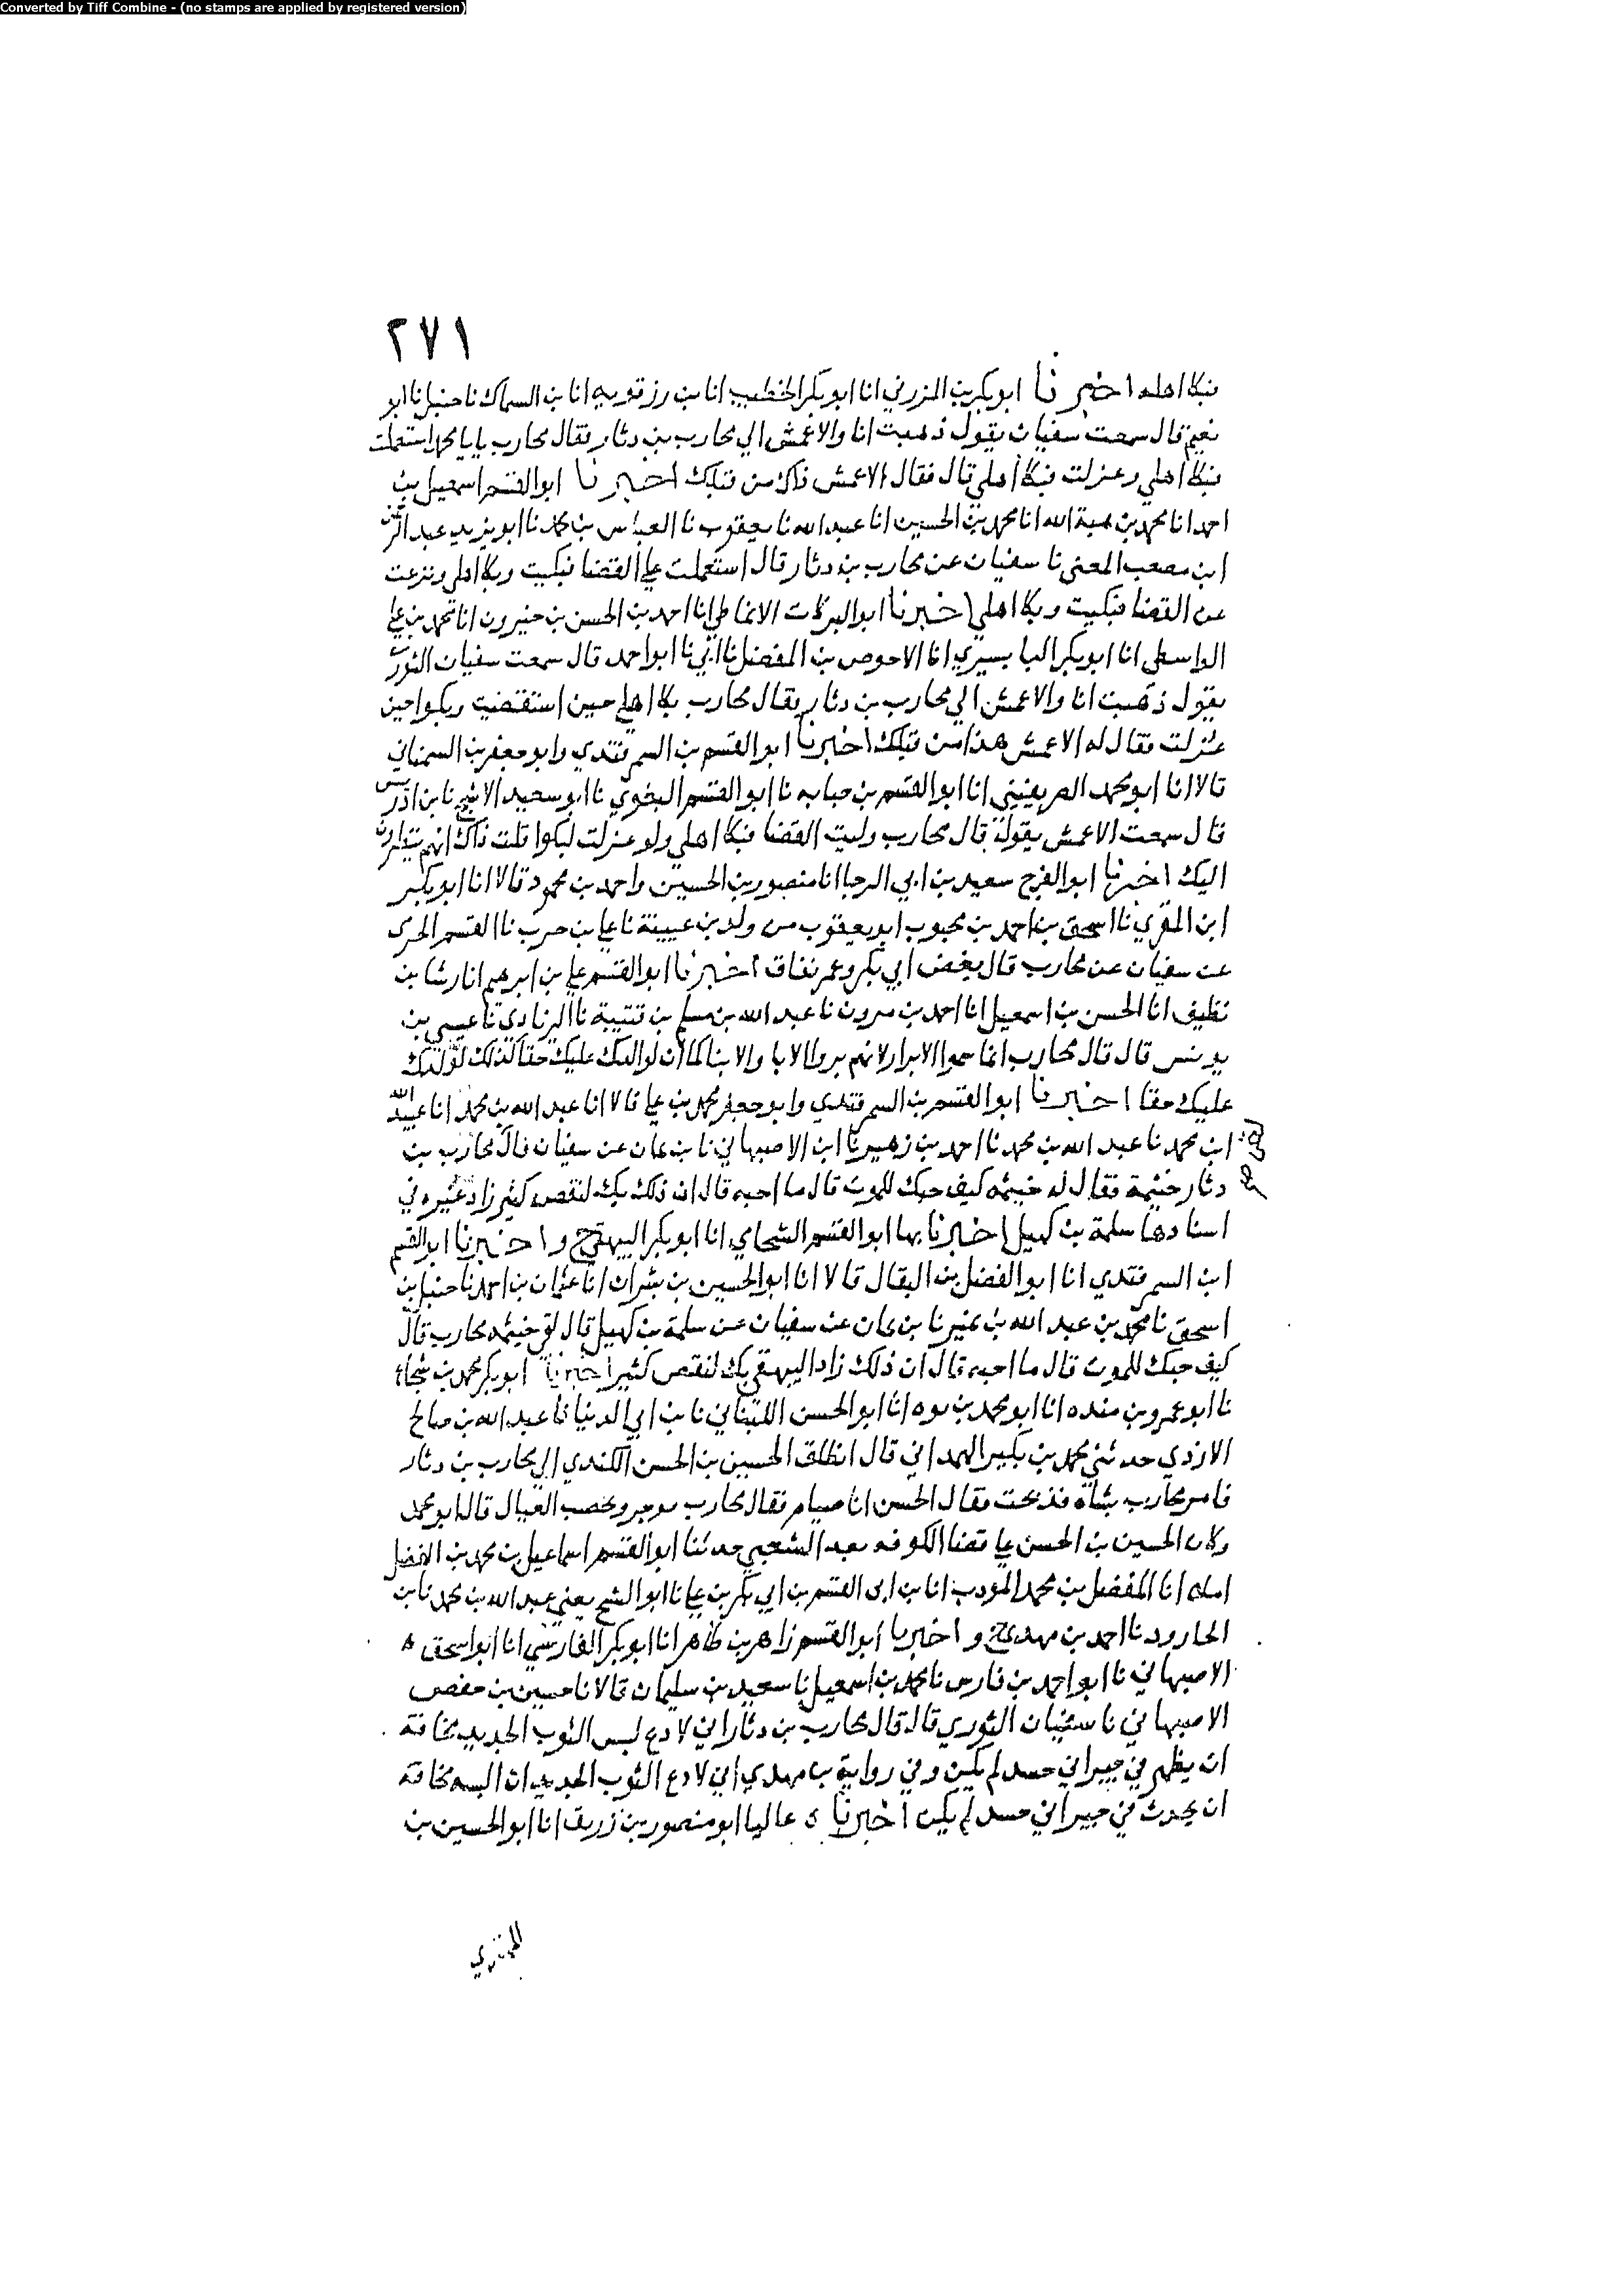 Converted by Tiff Combine - (no stamps are applied by registered version)
٢٧١
فبكا اهله اخبرنا ابو بكر بن المزرفي انا ابو بكر الخطيب انا بن رزقويه انا بن السماك نا حنبل نا ابو
نعيم قال سمعت سفيان يقول ذهبت انا والاعمش الي محارب بن دثار فقال محارب يابا محمد استعملت
فبكا اهلي وعزلت فبكا اهلي قال فقال الاعمش ذاك من قبلك اخبرنا ابو القسم اسمعيل بن
احمد انا محمد بن هبة الله انا محمد بن الحسين انا عبد الله نا يعقوب نا العباس بن محمد نا ابو يزيد عبد الرحمن
ابن مصعب المعني نا سفيان عن محارب بن دثار قال استعملت علي القضا فبكيت وبكا اهلي ونزعت
عن القضا فبكيت وبكا اهلي اخبرنا ابو البركات الانماطي انا احمد بن الحسن بن خيرون انا محمد بن علي
الواسطي انا ابو بكر البابسيري انا الاحوص بن المفضل نا ابي نا ابو احمد قال سمعت سفيان الثوري
يقول ذهبت انا والاعمش الي محارب بن دثار فقال محارب بكا اهلي حين استقضيت وبكوا حين
عزلت فقال له الاعمش هذا من قبلك اخبرنا ابو القسم بن السمرقندي وابو جعفر بن السمناني
قالا انا ابو محمد الصريفيني انا ابو القسم بن حبابه نا ابو القسم البغوي نا ابو سعيد الاشج نا بن ادريس
قال سمعت الاعمش يقول قال محارب وليت القضا فبكا اهلي ولو عزلت لبكوا قلت ذاك انهم ينظرون
اليك اخبرنا ابو الفرج سعيد بن ابي الرجا انا منصور بن الحسين واحمد بن محمود قالا انا ابو بكر
ابن المقري نا اسحق بن احمد بن محبوب ابو يعقوب من ولد بن عيينة نا علي بن حرب نا القسم الجرمي
عن سفيان عن محارب قال بغض ابي بكر وعمر نفاق اخبرنا ابو القسم علي بن ابرهيم انا رشا بن
نظيف انا الحسن بن اسمعيل انا احمد بن مرون نا عبد الله بن مسلم بن قتيبة نا الزيادي نا عيسي بن
يونس قال قال محارب انما سموا الابرار لانهم بروا الابا والابنا كما ان لوالدك عليك حقا كذلك لولدك
عليك حقا اخبرنا ابو القسم بن السمرقندي وابو جعفر محمد بن علي قالا انا عبد الله بن محمد انا عبيد الله
ابن محمد نا عبد الله بن محمد نا احمد بن زهير نا ابن الاصبهاني نا بن يمان عن سفيان قال محارب بن
دثار خيثمة فقال له خيثمه كيف حبك للموت قال ما احبه قال ان ذلك بك لنقص كثير زاد غيره في
اسنادها سلمة بن كهيل اخبرنا بها ابو القسم الشحامي انا ابو بكر البيهقي ح واخبرنا ابو القسم
ابن السمرقندي انا ابو الفضل بن البقال قالا انا ابو الحسين بن بشران انا عثمان بن احمد نا حنبل بن
اسحق نا محمد بن عبد الله بن نمير نا بن يمان عن سفيان عن سلمة بن كهيل قال لقي خيثمه محارب قال
كيف حبك للموت قال ما احبه قال ان ذلك زاد البيهقي بك لنقص كثير اخبرنا ابو بكر محمد بن شجاع
نا ابو عمرو بن منده انا ابو محمد بن يوه انا ابو الحسن اللنباني نا بن ابي الدنيا نا عبد الله بن صالح
الازدي حدثني محمد بن بكير الهمداني قال انطلق الحسين بن الحسن الكندي الي محارب بن دثار
فامر محارب بشاه فذبحت فقال الحسن انا صيام فقال محارب يوجر ويخصب العيال قال ابو محمد
وكان الحسين بن الحسن علي قضا الكوفه بعد الشعبي حدثنا ابو القسم اسماعيل بن محمد بن الفضل
املاه انا المفضل بن محمد المودب انا بن ابي القسم بن ابي بكر بن علي نا ابو الشيخ يعني عبد الله بن محمد نا بن
الجارود نا احمد بن مهدي ح واخبرنا ابو القسم زاهر بن طاهر انا ابو بكر الفارسي انا ابو اسحق
الاصبهاني نا ابو احمد بن فارس نا محمد بن اسمعيل نا سعيد بن سليمان قالا نا حسين بن حفص
الاصبهاني نا سفيان الثوري قال قال محارب بن دثار اني لادع لبس الثوب الجديد مخافة
ان يظهر في جيراني حسد لم يكن وفي رواية بن مهدي اني لادع الثوب الجديد ان البسه مخافة
ان يحدث في جيراني حسد لم يكن اخبرنا عاليا ابو منصور بن زريق انا ابو الحسين بن